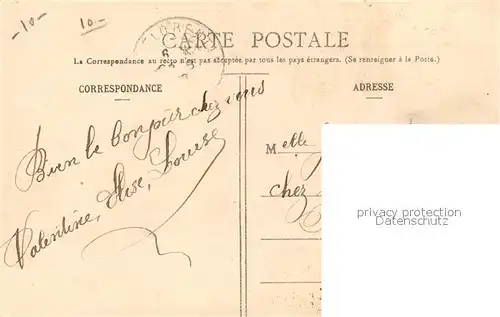 -10-
10.-
CARTE POSTALE
La Correspondance au recto n'est pas acceptée par tous les pays étrangers. (Se renseigner à la Poste.)
CORRESPONDANCE
ADRESSE
Bien le bonjour chez vous
Valentine, Elise, Louise
Melle
chez
privacy protection
Datenschutz